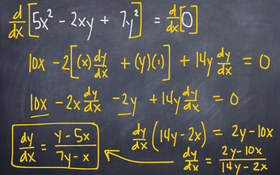 d/dx [5x² - 2xy + 7y²] = d/dx [0]
10x - 2[(x) dy/dx + (y)(1)] + 14y dy/dx = 0
10x - 2x dy/dx - 2y + 14y dy/dx = 0
dy/dx (14y - 2x) = 2y - 10x
dy/dx = (y - 5x)/(7y - x)
dy/dx = (2y - 10x)/(14y - 2x)